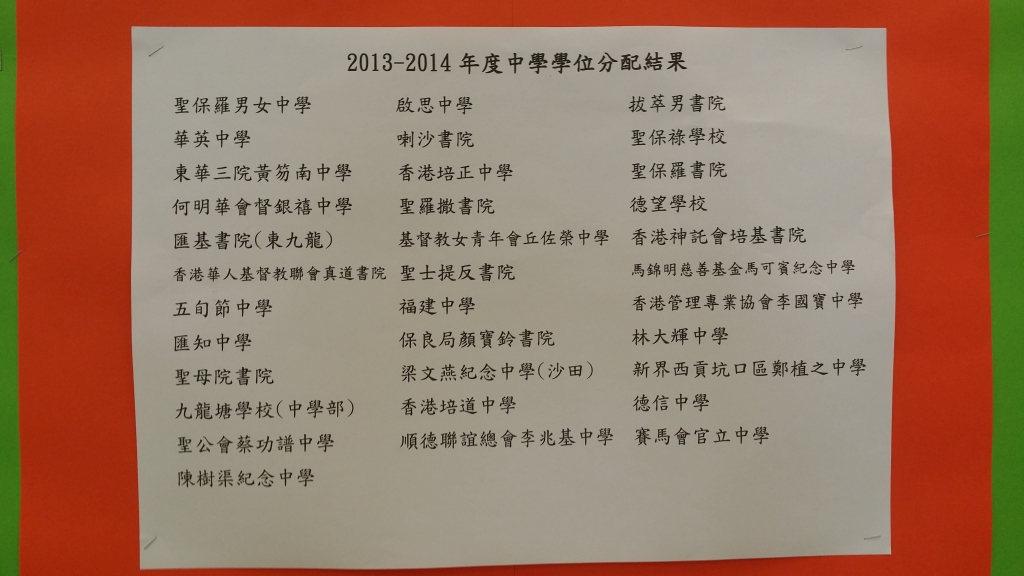 2013-2014 年度中學學位分配結果
聖保羅男女中學 啟思中學 拔萃男書院
華英中學 喇沙書院 聖保祿學校
東華三院黃笏南中學 香港培正中學 聖保羅書院
何明華會督銀禧中學 聖羅撒書院 德望學校
匯基書院(東九龍) 基督教女青年會丘佐榮中學 香港神託會培基書院
香港華人基督教聯會真道書院 聖士提反書院 馬錦明慈善基金馬可賓紀念中學
五旬節中學 福建中學 香港管理專業協會李國寶中學
匯知中學 保良局顏寶鈴書院 林大輝中學
聖母院書院 梁文燕紀念中學(沙田) 新界西貢坑口區鄭植之中學
九龍塘學校(中學部) 香港培道中學 德信中學
聖公會蔡功譜中學 順德聯誼總會李兆基中學 賽馬會官立中學
陳樹渠紀念中學